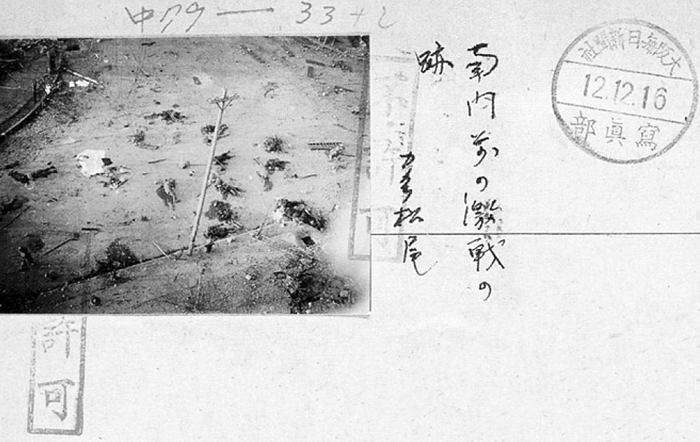 中
33
南門前の激戦の
跡
松尾
大阪毎日新聞社
12.12.16
寫眞部
不許可
許可